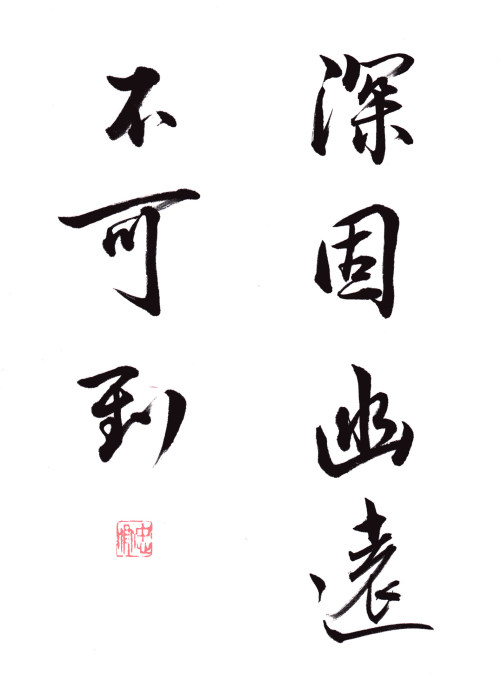 深固幽遠
不可到